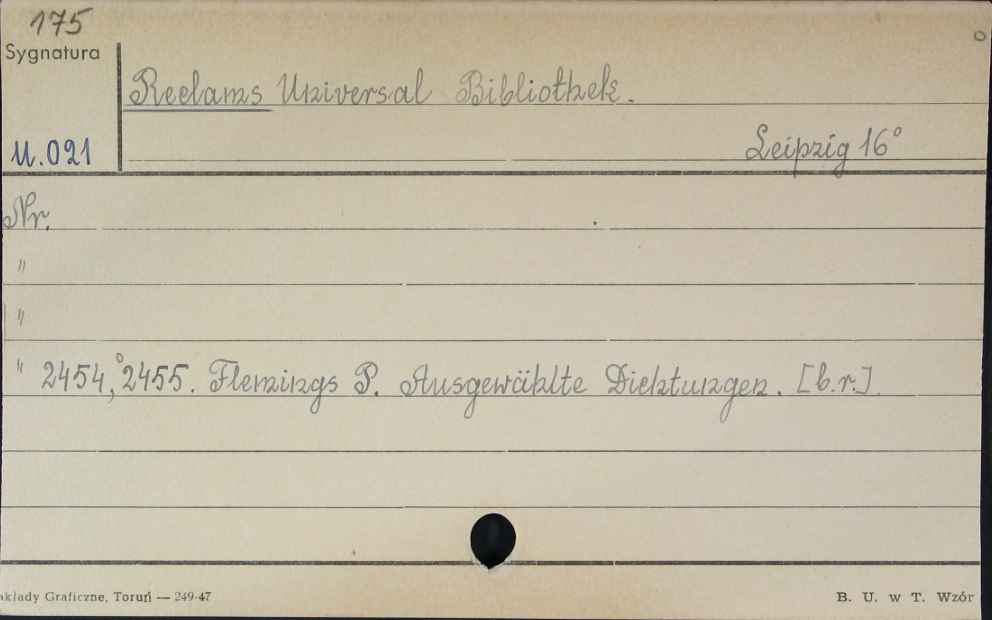 175
Sygnatura
Reclams Universal Bibliothek.
U.021
Leipzig 16°
Nr.
"
"
" 2454,° 2455. Flemings P. Ausgewählte Dichtungen. [b.r.]
akłady Graficzne, Toruń — 249-47
B. U. w T. Wzór